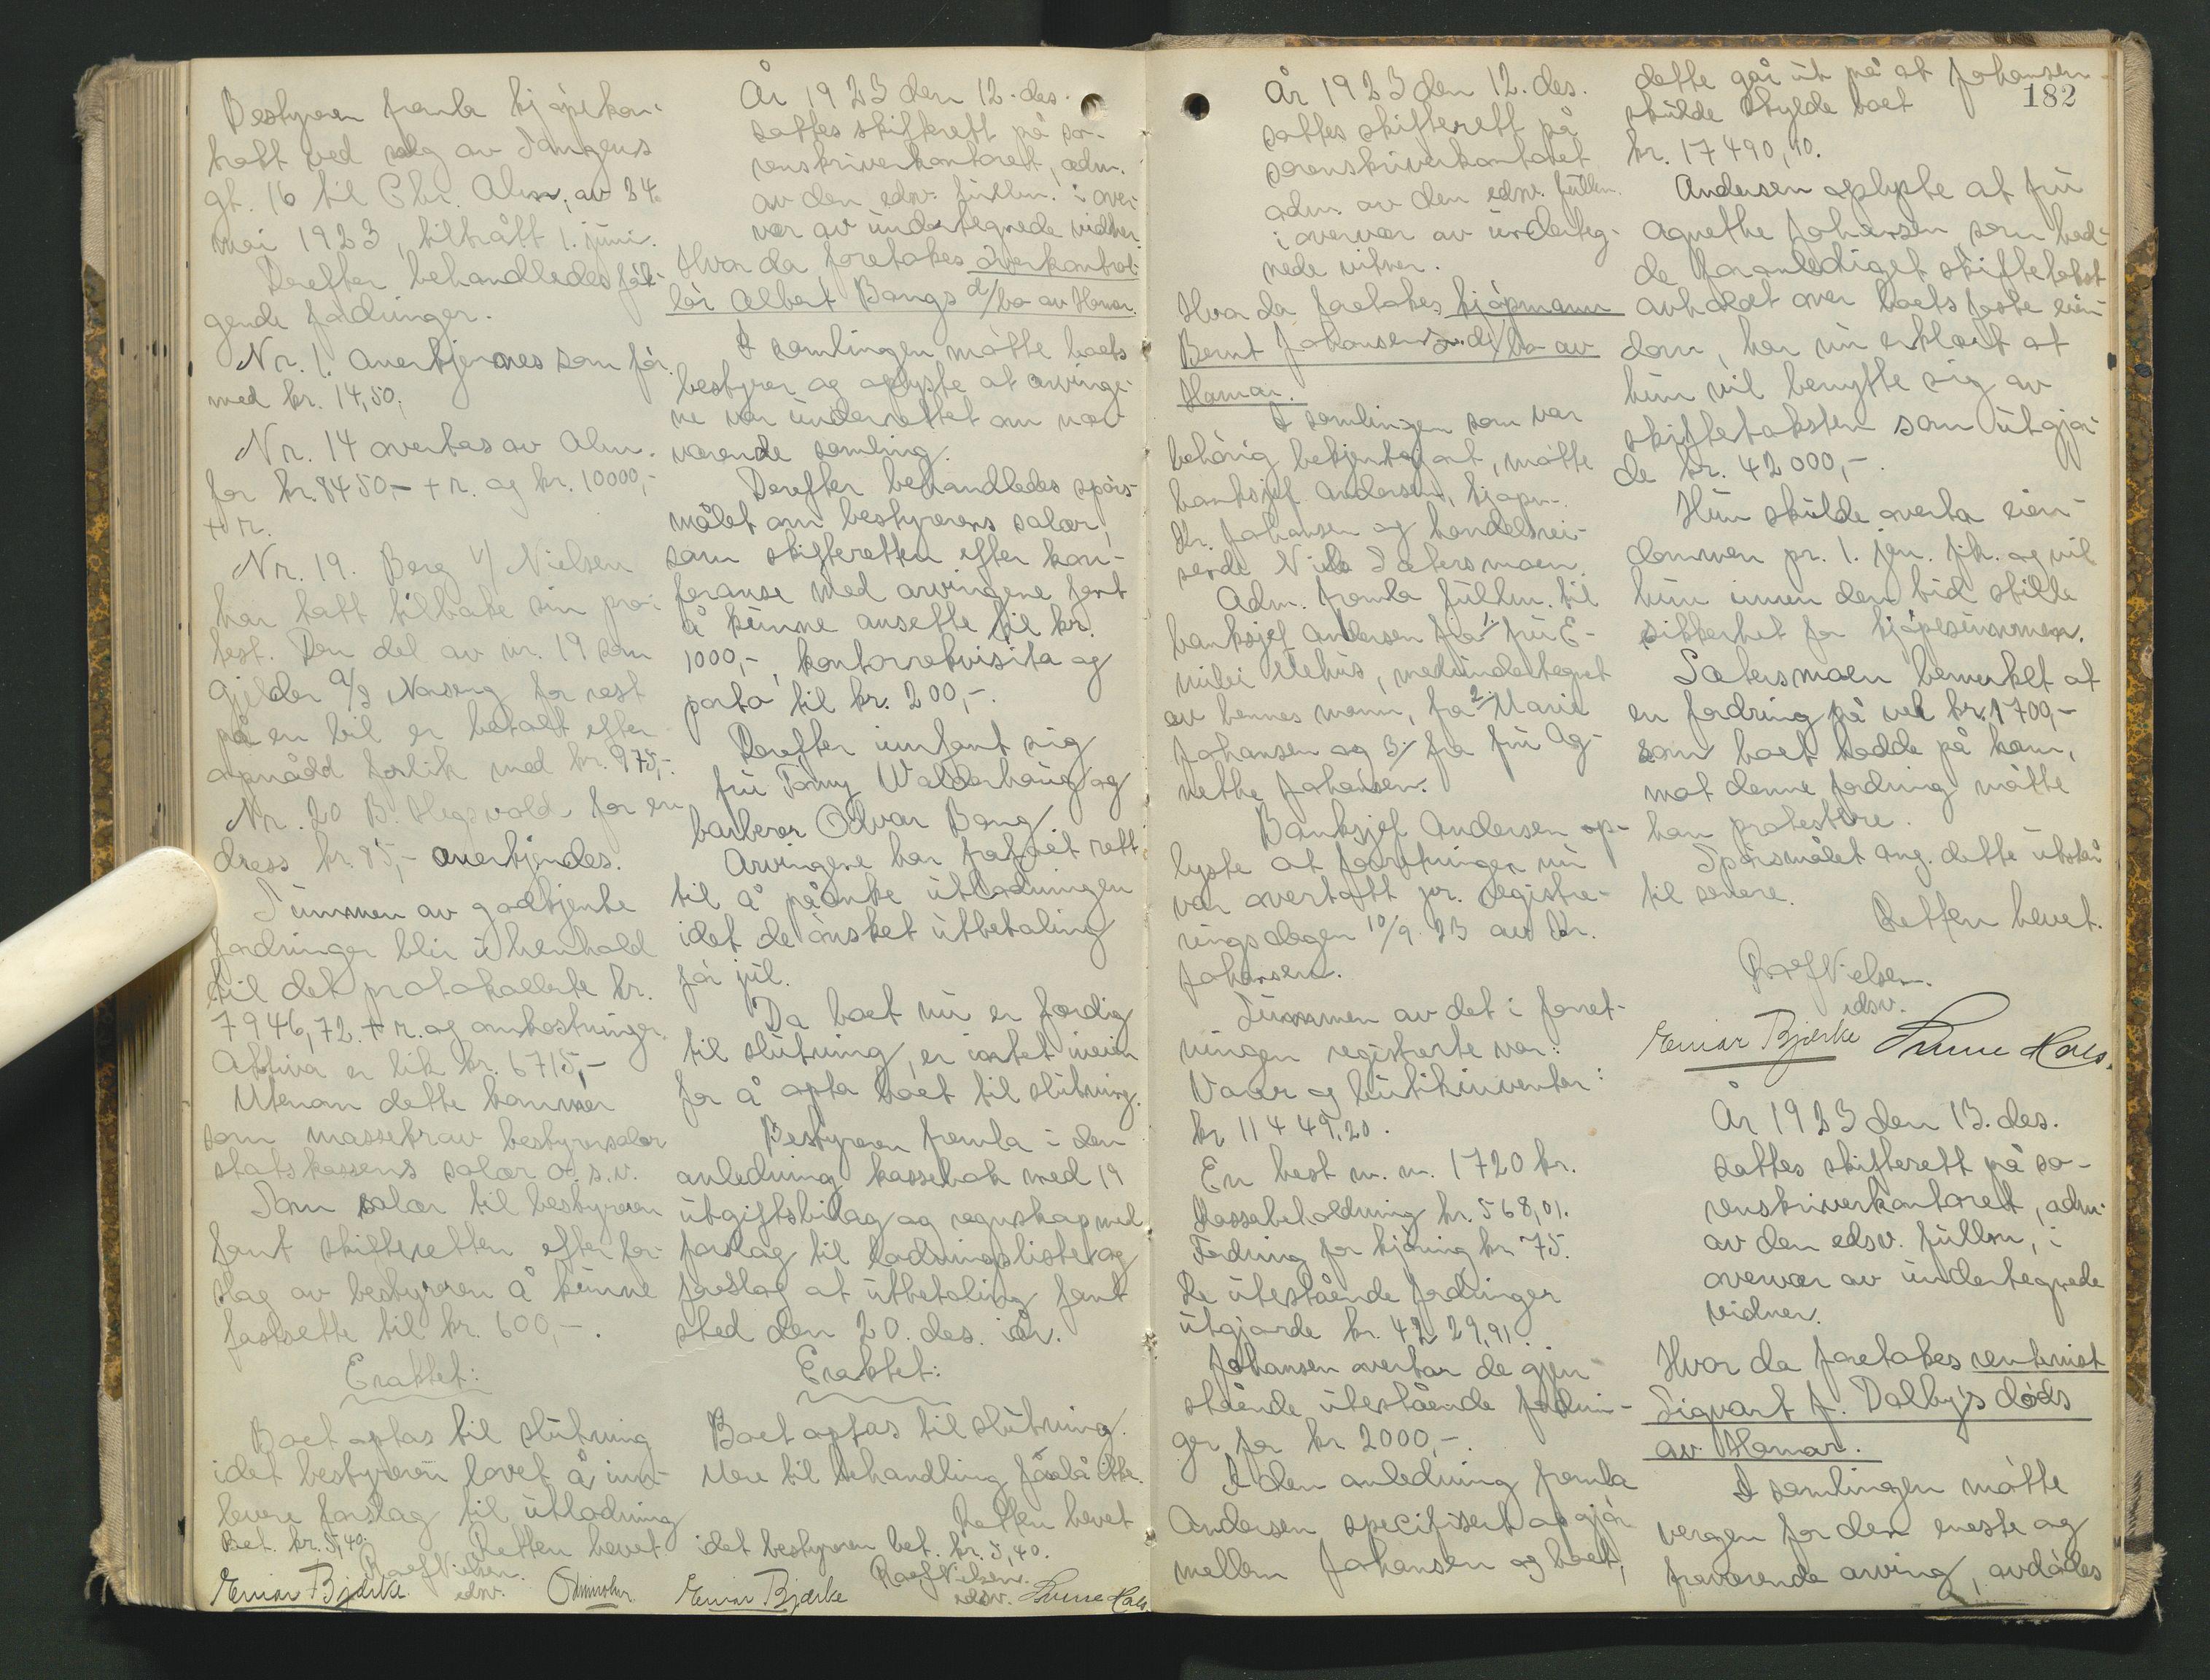 Bestyreren framla kjøpekon-
trakt ved salg av Vangens
gt. 16 til Chr. Alm, av 24.
mai 1923, tiltrått 1. juni.
Derefter behandledes føl-
gende fordringer.
Nr. 1. anerkjennes som før
med kr. 14,50.
Nr. 14 overtas av Alm
for kr. 8450,- + r. og kr. 10000,-
+ r.
Nr. 19. Berg & Nielsen
har tatt tilbake sin pro-
test. Den del av nr. 19 som
gjelder a/s Norseng for rest
på en bil er betalt efter
opnådd forlik med kr. 975,-.
Nr. 20 B. Hegsvold, for en
dress kr. 85,- anerkjendes.
Summen av godkjente
fordringer blir i henhold
til det protokollerte kr.
7946,72 + r. og omkostninger.
Aktiva er lik kr. 6715,-
Utenom dette kommer
som massekrav bestyrersalær
statskassens salær o.s.v.
Som salær til bestyreren
fant skifteretten efter for-
slag av bestyreren å kunne
fastsette til kr. 600,-.
Eraktet:
Boet optas til slutning
idet bestyreren lovet å inn-
levere forslag til utlodning
Bet. kr. 5,40. Retten hevet.
Roef Nielsen.
edsv.
Einar Bjørke
År 1923 den 12. des.
sattes skifterett på so-
renskriverkontoret, adm.
av den edsv. fullm. i over-
vær av undertegnede vidner.
Hvor da foretakes overkontrol-
lør Albert Bangs d/bo av Hamar.
I samlingen møtte boets
bestyrer og oplyste at arvinge-
ne var underrettet om nær-
værende samling.
Derefter behandledes spørs-
målet om bestyrerens salær,
som skifteretten efter kon-
feranse med arvingene fant
å kunne ansette til kr.
1000,-, kontorrekvisita og
porto til kr. 200,-.
Derefter innfant sig
fru Tomy Walderhaug og
barberer Odvar Bang.
Arvingene har frafalt rett
til å påanke utlodningen
idet de ønsket utbetaling
før jul.
Da boet nu er færdig
til slutning, er intet iveien
for å opta boet til slutning.
Bestyreren fremla i den
anledning kassebok med 19
utgiftsbilag og regnskap med
forslag til lodningsliste og
forslag at utbetaling fant
sted den 20. des. iår.
Eraktet:
Boet optas til slutning.
Mere til behandling forelå ikke.
Retten hevet
idet bestyreren bet. kr. 5,40.
Roef Nielsen.
edsv.
Einar Bjørke
182
År 1923 den 12. des.
sattes skifterett på
sorenskriverkontoret
adm. av den edsv. fullm.
i overvær av underteg-
nede vitner.
Hvor da foretakes kjøpmann
Bernt Johansens d/bo av
Hamar.
I samlingen som var
behørig bekjentgjort, møtte
banksjef Andersen, kjøpm.
Kr. Johansen og handelsrei-
sende Nils Sætersmoen.
Adm. fremla fullm. til
banksjef Andersen fra 1. fru E-
milie Utehus, medundertegnet
av hennes mann, fra 2. Marie
Johansen og 3. fra fru Ag-
nethe Johansen.
Banksjef Andersen op-
lyste at forretningen nu
var overtatt pr. registre-
ringsdagen 10/9. 23 av Kr.
Johansen.
Summen av det i forret-
ningen registrerte var:
Varer og butikinventar:
kr. 11449,20.
En hest m. m. 1720 kr.
Kassebeholdning kr. 568,01.
Fordring for kjøring kr. 75.
De utestående fordringer
utgjorde kr. 4229,91.
Johansen overtar de gjen-
stående utestående fordrin-
ger for kr. 2000,-.
I den anledning fremla
Andersen specifisert opgjør
mellem Johansen og boet,
dette går ut på at Johansen
skulde skylde boet
kr. 17490,90.
Andersen oplyste at fru
Agnethe Johansen som had-
de foranlediget skiftetakst
avholdt over boets faste eien-
dom, har nu erklært at
hun vil benytte sig av
skiftetaksten som utgjor-
de kr. 42000,-.
Hun skulde overta eien-
dommen pr. 1. jan. fik. og vil
hun innen den tid stille
sikkerhet for kjøpesummen.
Sætersmoen bemerket at
en fordring på vel kr. 1700,-
som boet hadde på ham,
mot denne fordring måtte
han protestere.
Spørsmålet ang. dette utstår
til senere.
Retten hevet.
Roef Nielsen.
edsv.
Einar Bjørke
År 1923 den 13. des.
sattes skifterett på so-
renskriverkontoret, adm.
av den edsv. fullm, i
overvær av undertegnede
vidner.
Hvor da foretakes rentenist
Sigvart J. Dalby's døds
av Hamar.
I samlingen møtte
vergen for den eneste og
fraværende arving, avdødes